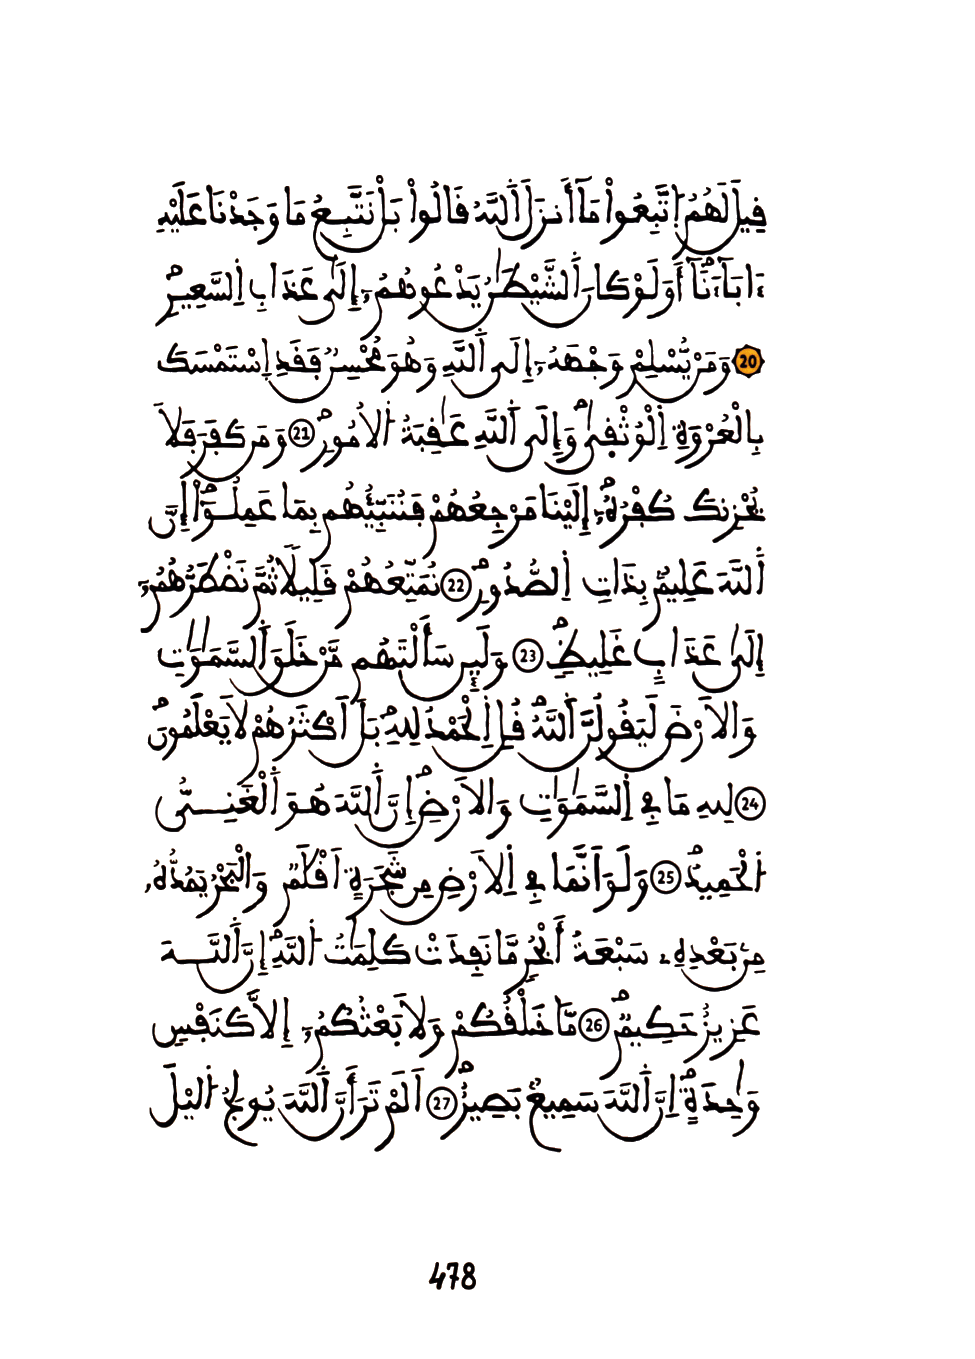 قِيلَ لَهُمُ اُ۪تَّبِعُواْ مَآ أَنزَلَ اَ۬للَّهُ قَالُواْ بَلْ نَتَّبِعُ مَا وَجَدْنَا عَلَيْهِ
ءَابَآءَنَآ أَوَلَوْ كَانَ اَ۬لشَّيْطَٰنُ يَدْعُوهُمُۥٓ إِلَىٰ عَذَابِ اِ۬لسَّعِيرِ
20 وَمَنْ يُّسْلِمْ وَجْهَهُۥٓ إِلَى اَ۬للَّهِ وَهُوَ مُحْسِنٞ فَقَدِ اِ۪سْتَمْسَكَ
بِالْعُرْوَةِ اِ۬لْوُثْقَىٰ وَإِلَى اَ۬للَّهِ عَٰقِبَةُ اُ۬لْأُمُورِ 21 وَمَن كَفَرَ فَلَا
يُحْزِنكَ كُفْرُهُۥٓ إِلَيْنَا مَرْجِعُهُمْ فَنُنَبِّئُهُم بِمَا عَمِلُوٓاْ إِنَّ
اَ۬للَّهَ عَلِيمُۢ بِذَاتِ اِ۬لصُّدُورِ 22 نُمَتِّعُهُمْ قَلِيلٗا ثُمَّ نَضْطَرُّهُمُۥٓ
إِلَىٰ عَذَابٍ غَلِيظٖ 23 وَلَئِن سَأَلْتَهُم مَّنْ خَلَقَ اَ۬لسَّمَٰوَٰتِ
وَالْأَرْضَ لَيَقُولُنَّ اَ۬للَّهُ قُلِ اِ۬لْحَمْدُ لِلهِ بَلَ اَكْثَرُهُمْ لَا يَعْلَمُونَ
24 لِلهِ مَا فِي اِ۬لسَّمَٰوَٰتِ وَالْأَرْضِ إِنَّ اَ۬للَّهَ هُوَ اَ۬لْغَنِيُّ
اُ۬لْحَمِيدُ 25 وَلَوَ اَنَّمَا فِي اِ۬لْأَرْضِ مِن شَجَرَةٍ اَقْلَٰمٞ وَالْبَحْرُ يَمُدُّهُۥ
مِنۢ بَعْدِهِۦ سَبْعَةُ أَبْحُرٖ مَّا نَفِدَتْ كَلِمَٰتُ اُ۬للَّهِ إِنَّ اَ۬للَّهَ
عَزِيزٌ حَكِيمٞ 26 مَّا خَلْقُكُمْ وَلَا بَعْثُكُمُۥٓ إِلَّا كَنَفْسٖ
وَٰحِدَةٍ إِنَّ اَ۬للَّهَ سَمِيعُۢ بَصِيرٌ 27 اَلَمْ تَرَ أَنَّ اَ۬للَّهَ يُولِجُ اُ۬ليْلَ
478